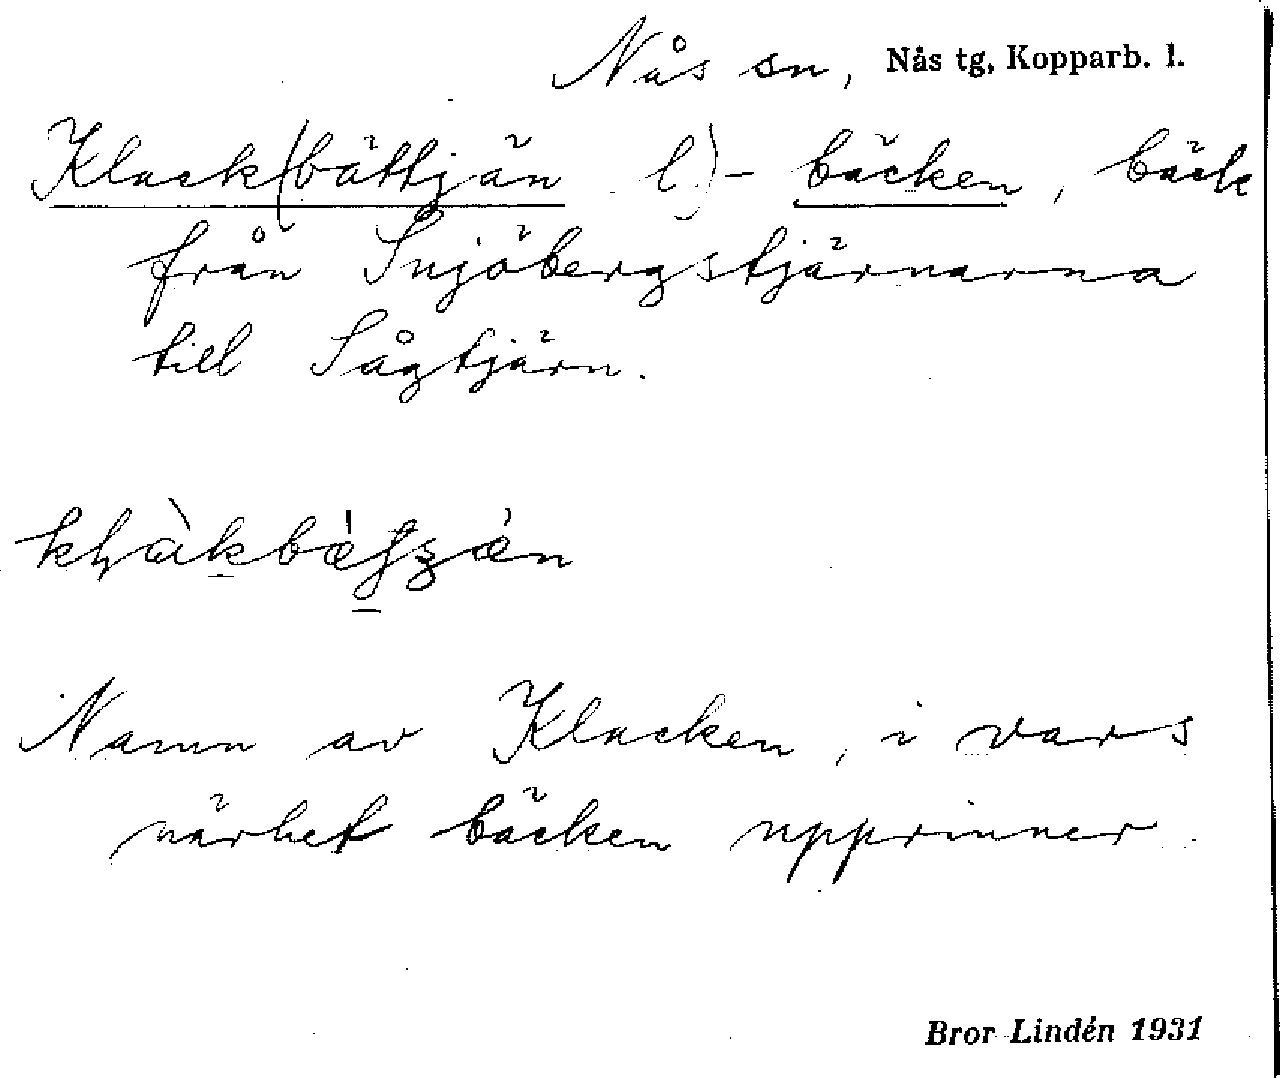 Nås sn, Nås tg, Kopparb. l.
Klack(bättjän l)-bäcken, bäck
från Snjöbergstjärnarna
till Sågtjärn.
Namn av Klacken, i vars
närhet bäcken upprinner.
Bror Lindén 1931